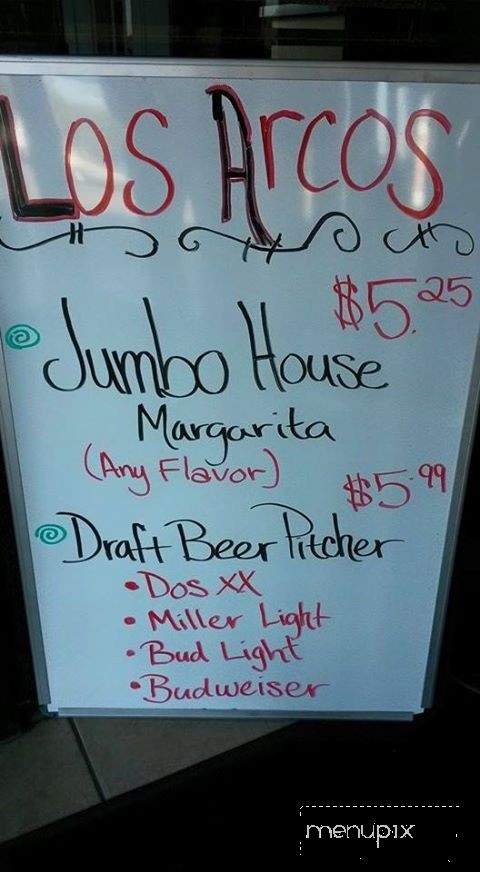 Los Arcos
$5.25
Jumbo House
Margarita
(Any Flavor)
$5.99
Draft Beer Pitcher
• Dos XX
• Miller Light
• Bud Light
• Budweiser
menupix